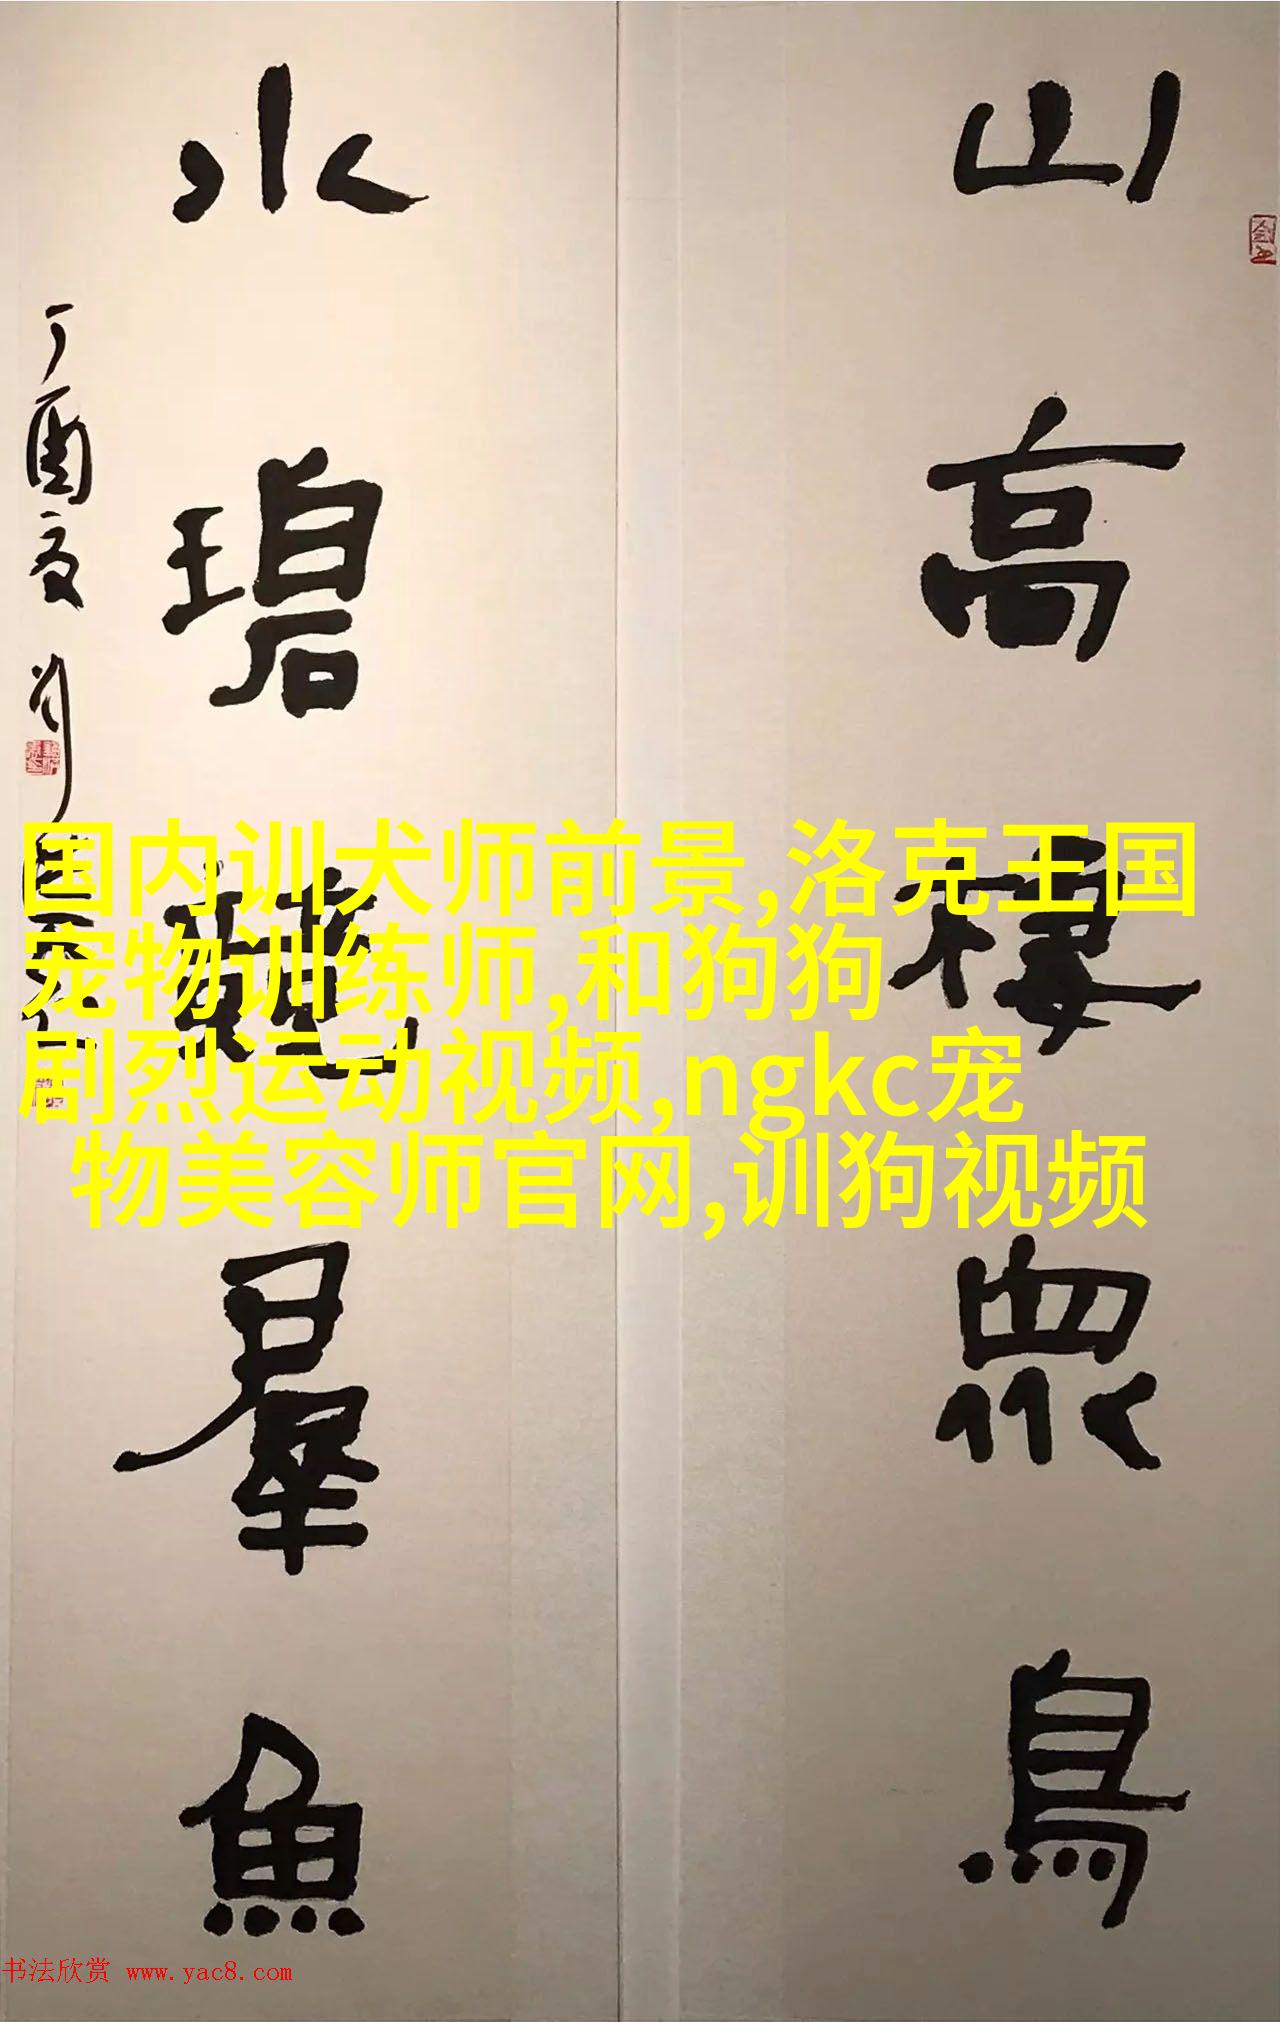 山高棲眾鳥
水碧羣魚
丁酉夏
国内训犬师前景,洛克王国
宠物训练师,和狗狗
剧烈运动视频,ngkc宠
物美容师官网,训狗视频
书法欣赏 www.yac8.com